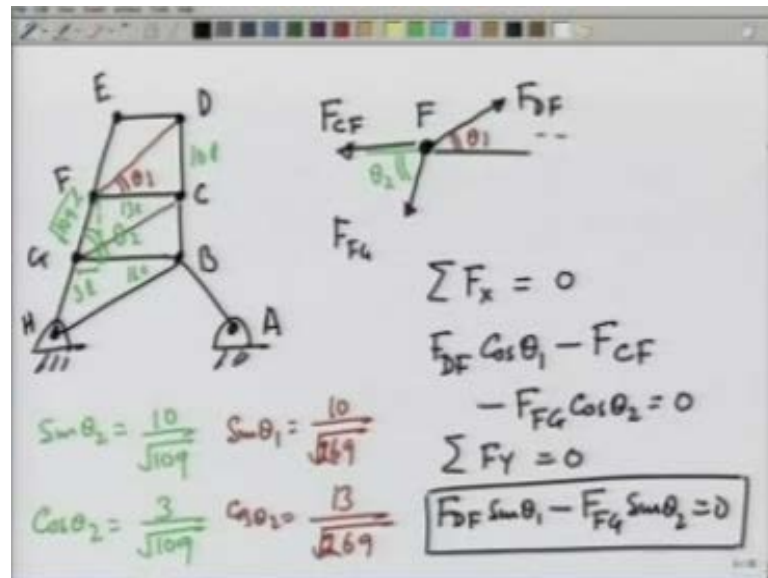 E
D
F
θ1
10l
C
√109 l
13l
θ2
G
B
3l
16l
H
A
F_CF
F
F_DF
θ1
θ2
F_FG
ΣF_x = 0
F_DF Cosθ1 − F_CF
− F_FG Cosθ2 = 0
ΣFy = 0
F_DF Sinθ1 − F_FG Sinθ2 = 0
Sinθ2 = 10/√109
Sinθ1 = 10/√269
Cosθ2 = 3/√109
Cosθ2 = 13/√269